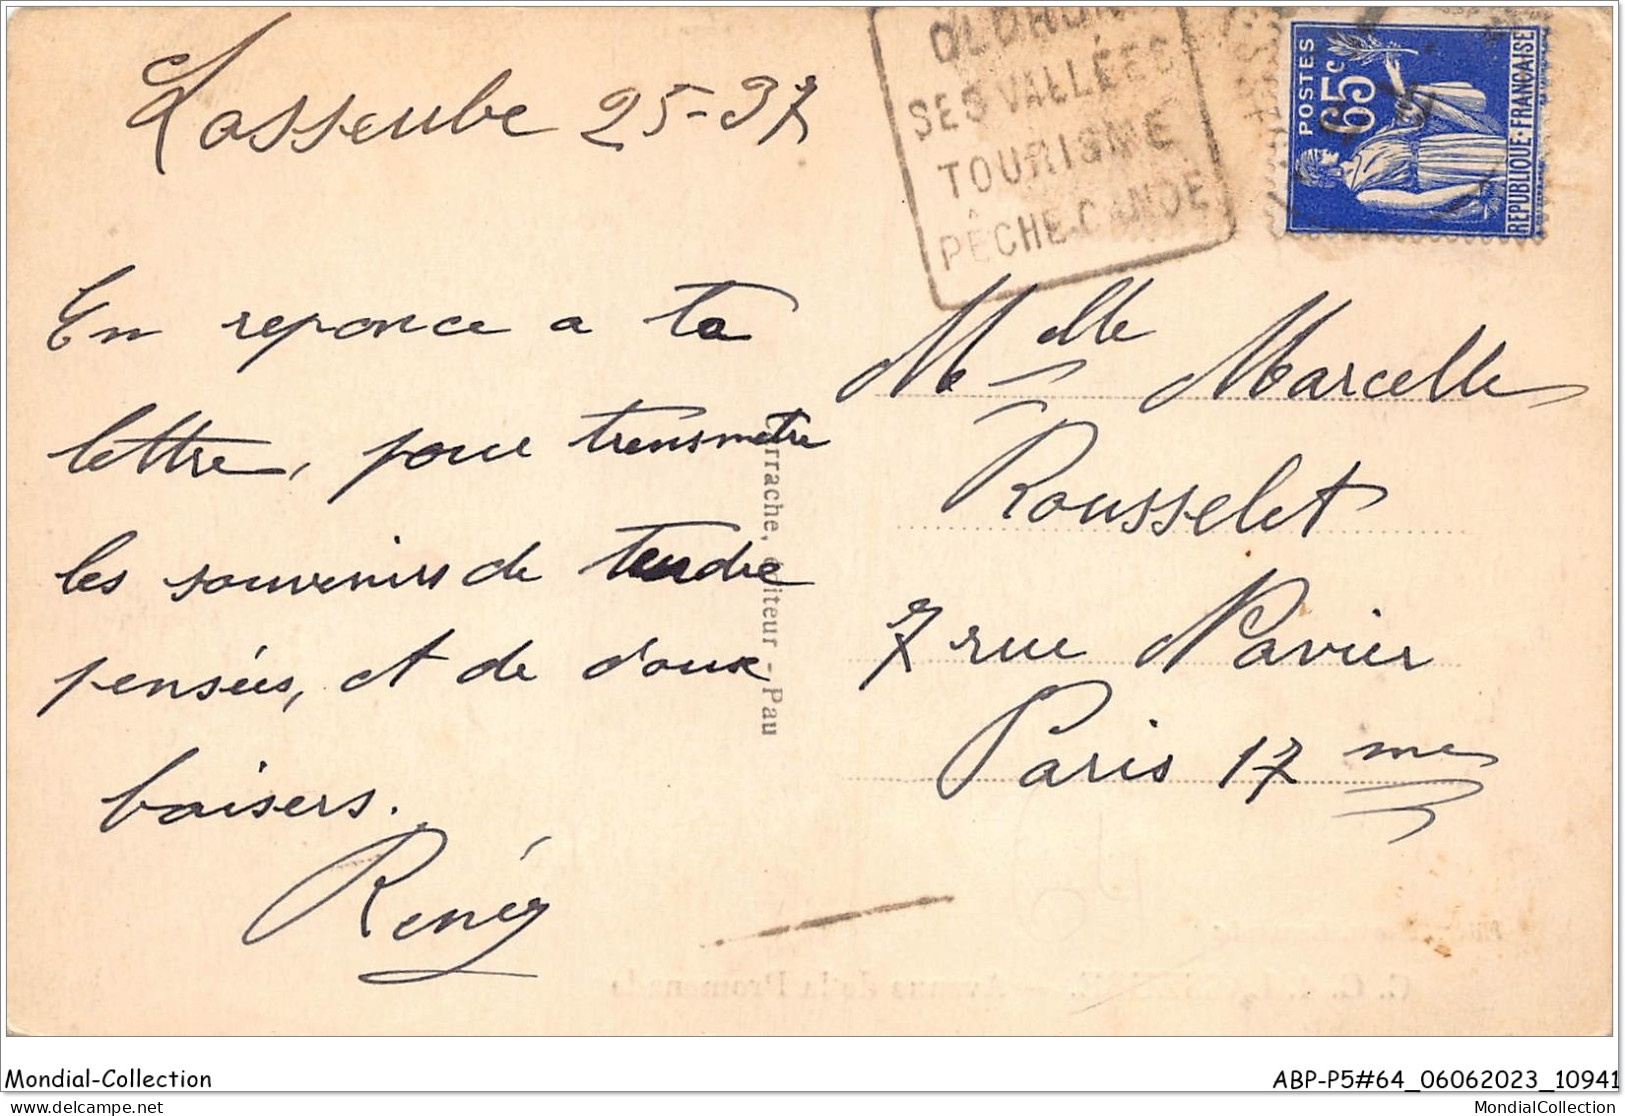 Lasseube 25-37
En reponce a ta
lettre, pour transmetre
les souvenirs de tendre
pensées, et de doux
baisers.
René
SES VALLÉES
TOURISME
PÊCHE.CANOE
POSTES
65c
REPUBLIQUE-FRANÇAISE
Melle Marcelle
Rousselet
7 rue Navier
Paris 17 me
rrache, editeur - Pau
Mondial-Collection
ABP-P5#64_06062023_10941
Mondial-Collection.com
MondialCollection